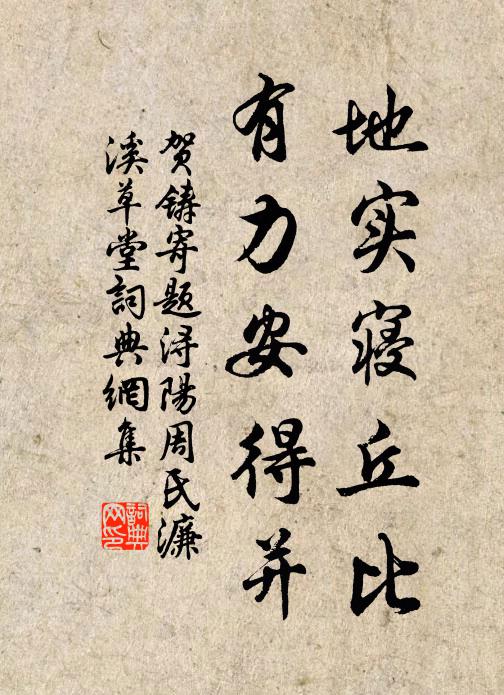 地实寝丘比
有力安得并
贺铸寄题浔陽周氏濂
溪草堂詞典網集
詞典网印